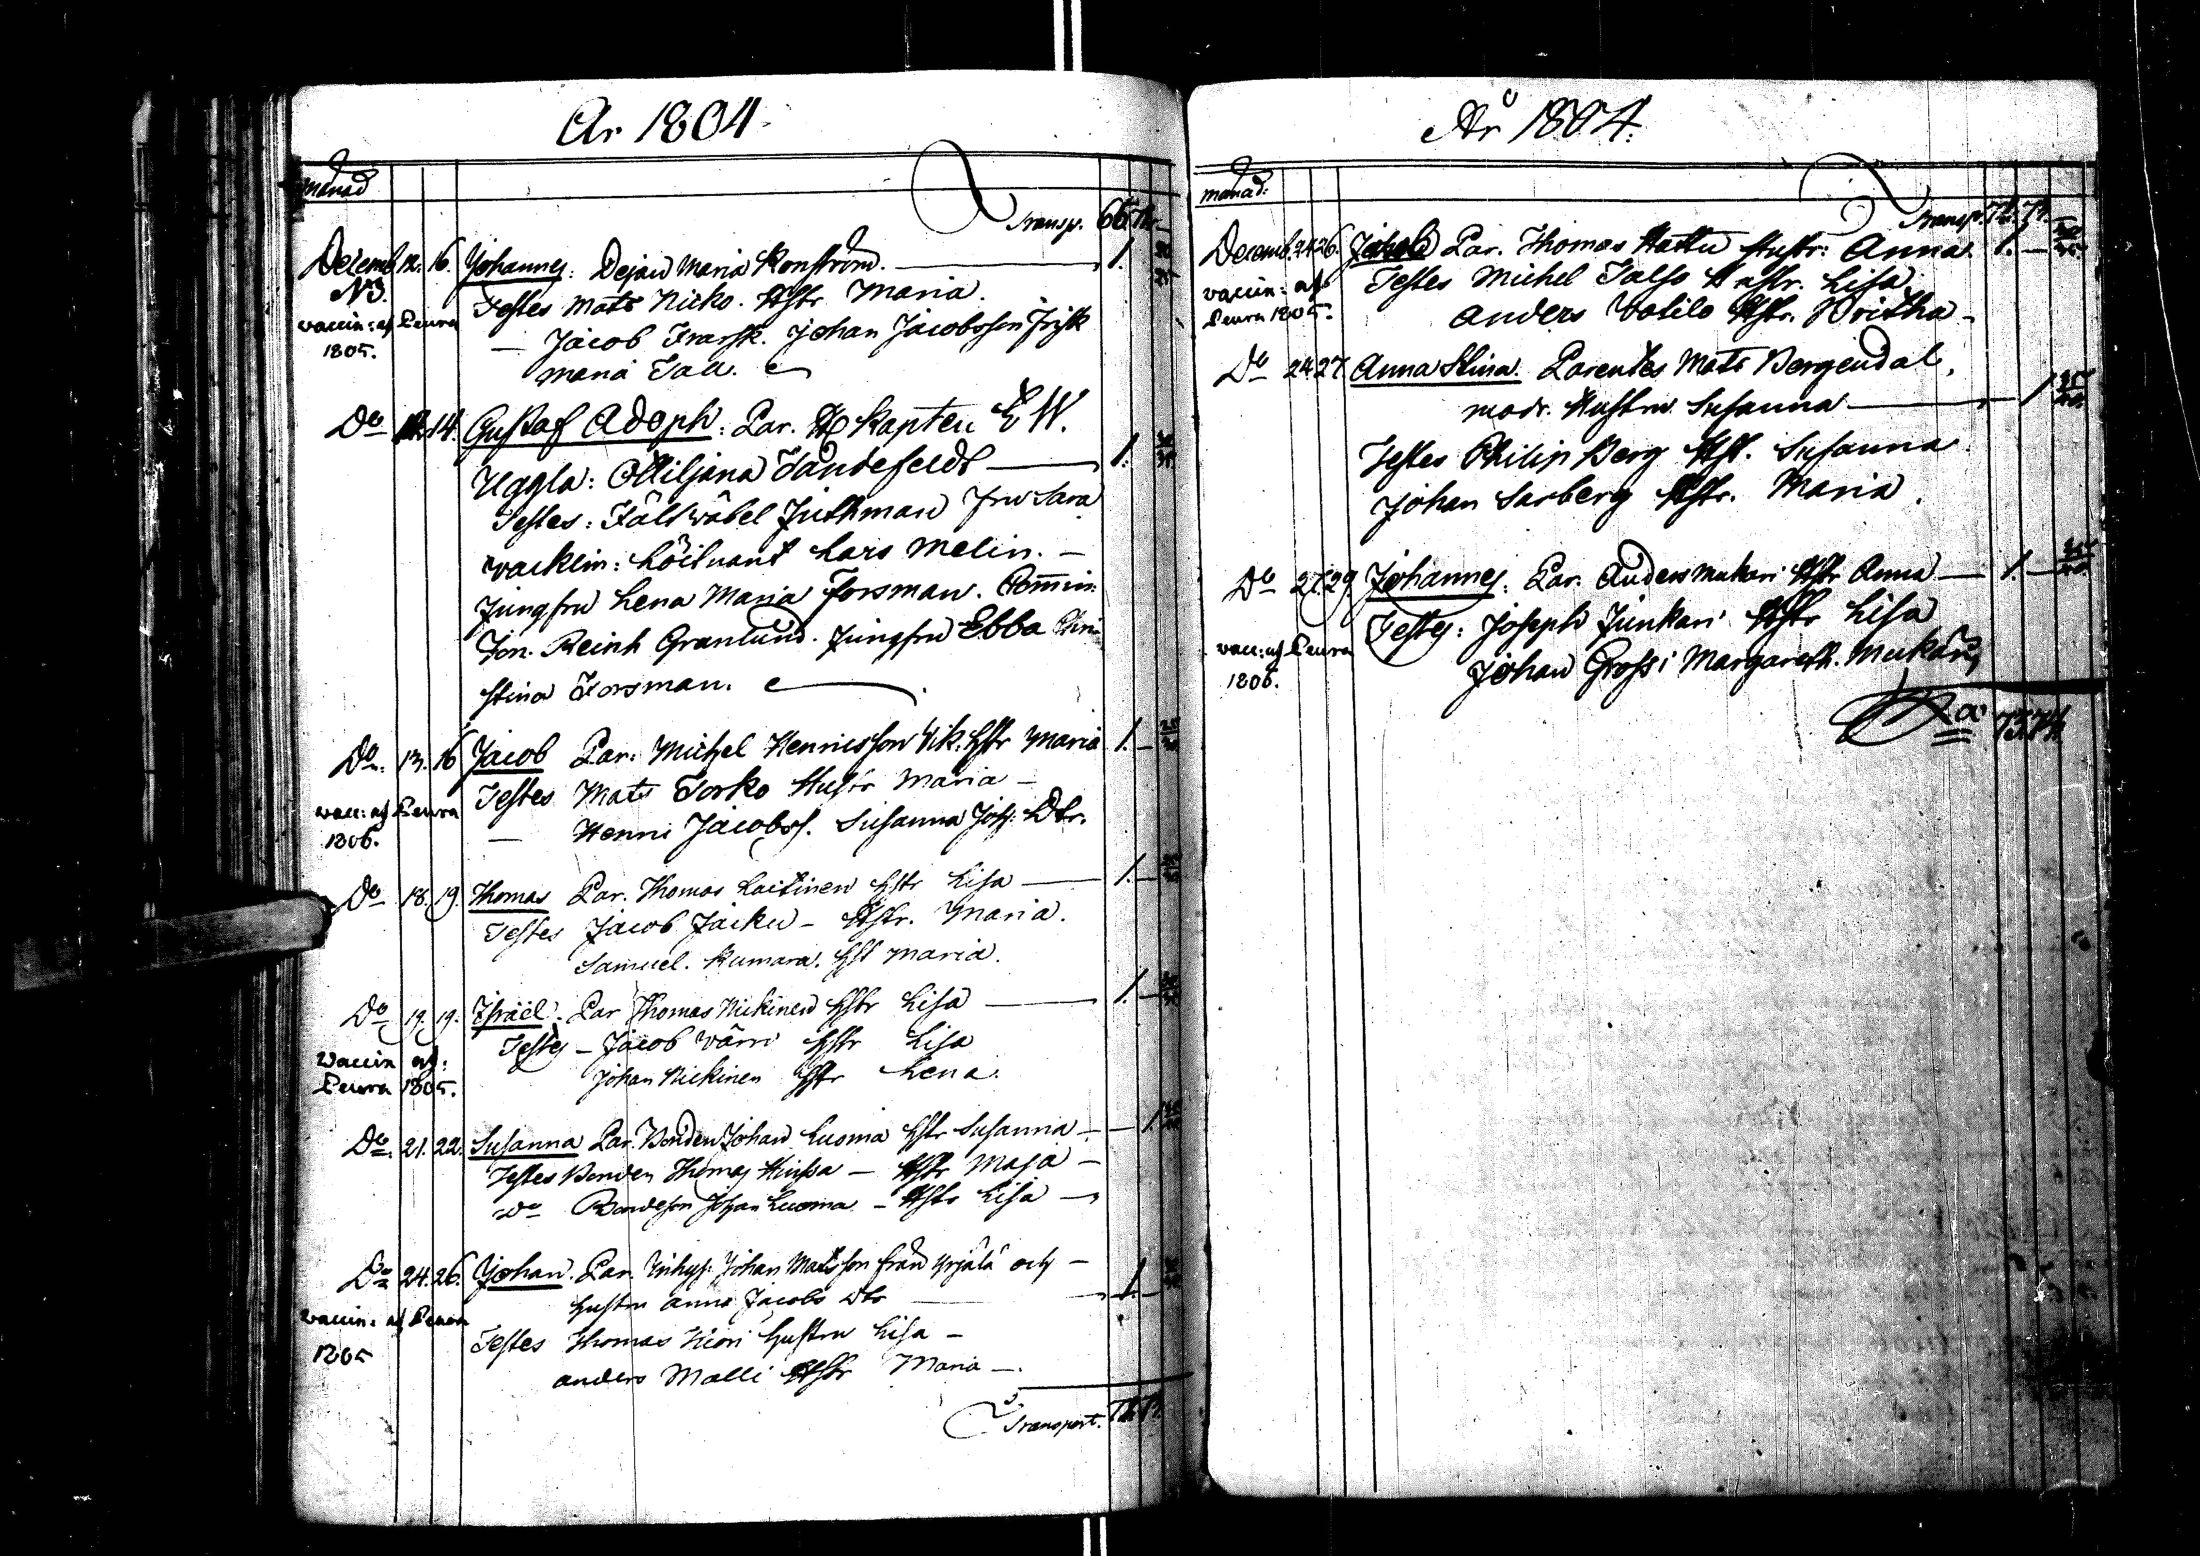 År 1804.
månad
Transp. 66.
Decemb. 12. 16. Johannes: Dejan Maria Konström. 1.
N3. Testes Mats Nicko. Hstr Maria.
vaccin: af Peura
1805. — Jacob Fransk. Johan Jacobsson Frisk
Maria
Do 14. Gustaf Adoph: Par. H Kapten E W.
Uggla: Ottiljana Tandefeldt 1.
Testes: Fältwäbel Juthman fru Sara
Wacklin: Löitnant Lars Melin. —
Jungfru Lena Maria Forsman. Commin:
Jon. Reinh Granlund. Jungfru Ebba
Stina Forsman.
Do. 13. 16 Jacob Par. Michel Hennicsson Vik. Hstr Maria 1.
vacc: af Peura Testes Mats Torko Hustr Maria —
1806. — Henric Jacobss. Susanna Johs. Dtr.
Do 18. 19. Thomas Par. Thomas Laitinen Hstr Lisa 1.
Testes Jacob Jäcku — Hstr. Maria.
Samuel. Kumara. Hst Maria.
Do 19. 19. Israël. Par Thomas Nickinen Hstr Lisa 1.
vaccin af: Testes — Jacob Värri Hstr Lisa
Peura 1805. Johan Nickinen Hstr Lena.
Do. 21. 22. Susanna Par. Bonden Johan Luoma Hstr Susanna — 1.
Testes Bonden Thomas — Hstr Maja —
Do Bondeson Johan Luoma — Hstr Lisa —
Do 24. 26. Johan. Par. Inhys. Johan Matsson från Yrjälä och —
Hustru Anna Jacobs Dtr 1.
vaccin: af Peura
1805 Testes Thomas Hustru Lisa —
Anders Malli Hstr Maria —.
Transport.
År 1804.
månad:
Transp. 72.
Decemb. 24 26. Par. Thomas Hattu Hustr: Anna. 1.
vaccin: af Testes Michel Talso Hustr. Lisa
Peura 1805. Anders Hstr. Britha —
Do 24 27 Anna Stina. Parentes Mats Bergendal,
modr. Hustru Susanna 1
Testes Philip Berg Hst. Susanna
Johan Sarberg Hstr. Maria.
Do 27. 29. Johannes. Par. Anders Mukari Hstr Anna 1.
Testes: Joseph Junkari Hstr Lisa
vacc: af Peura
1806. Johan Grossi Margareth. Mukari,